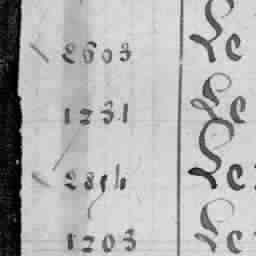 2603 Le
1231 Le
Le
1203 Le